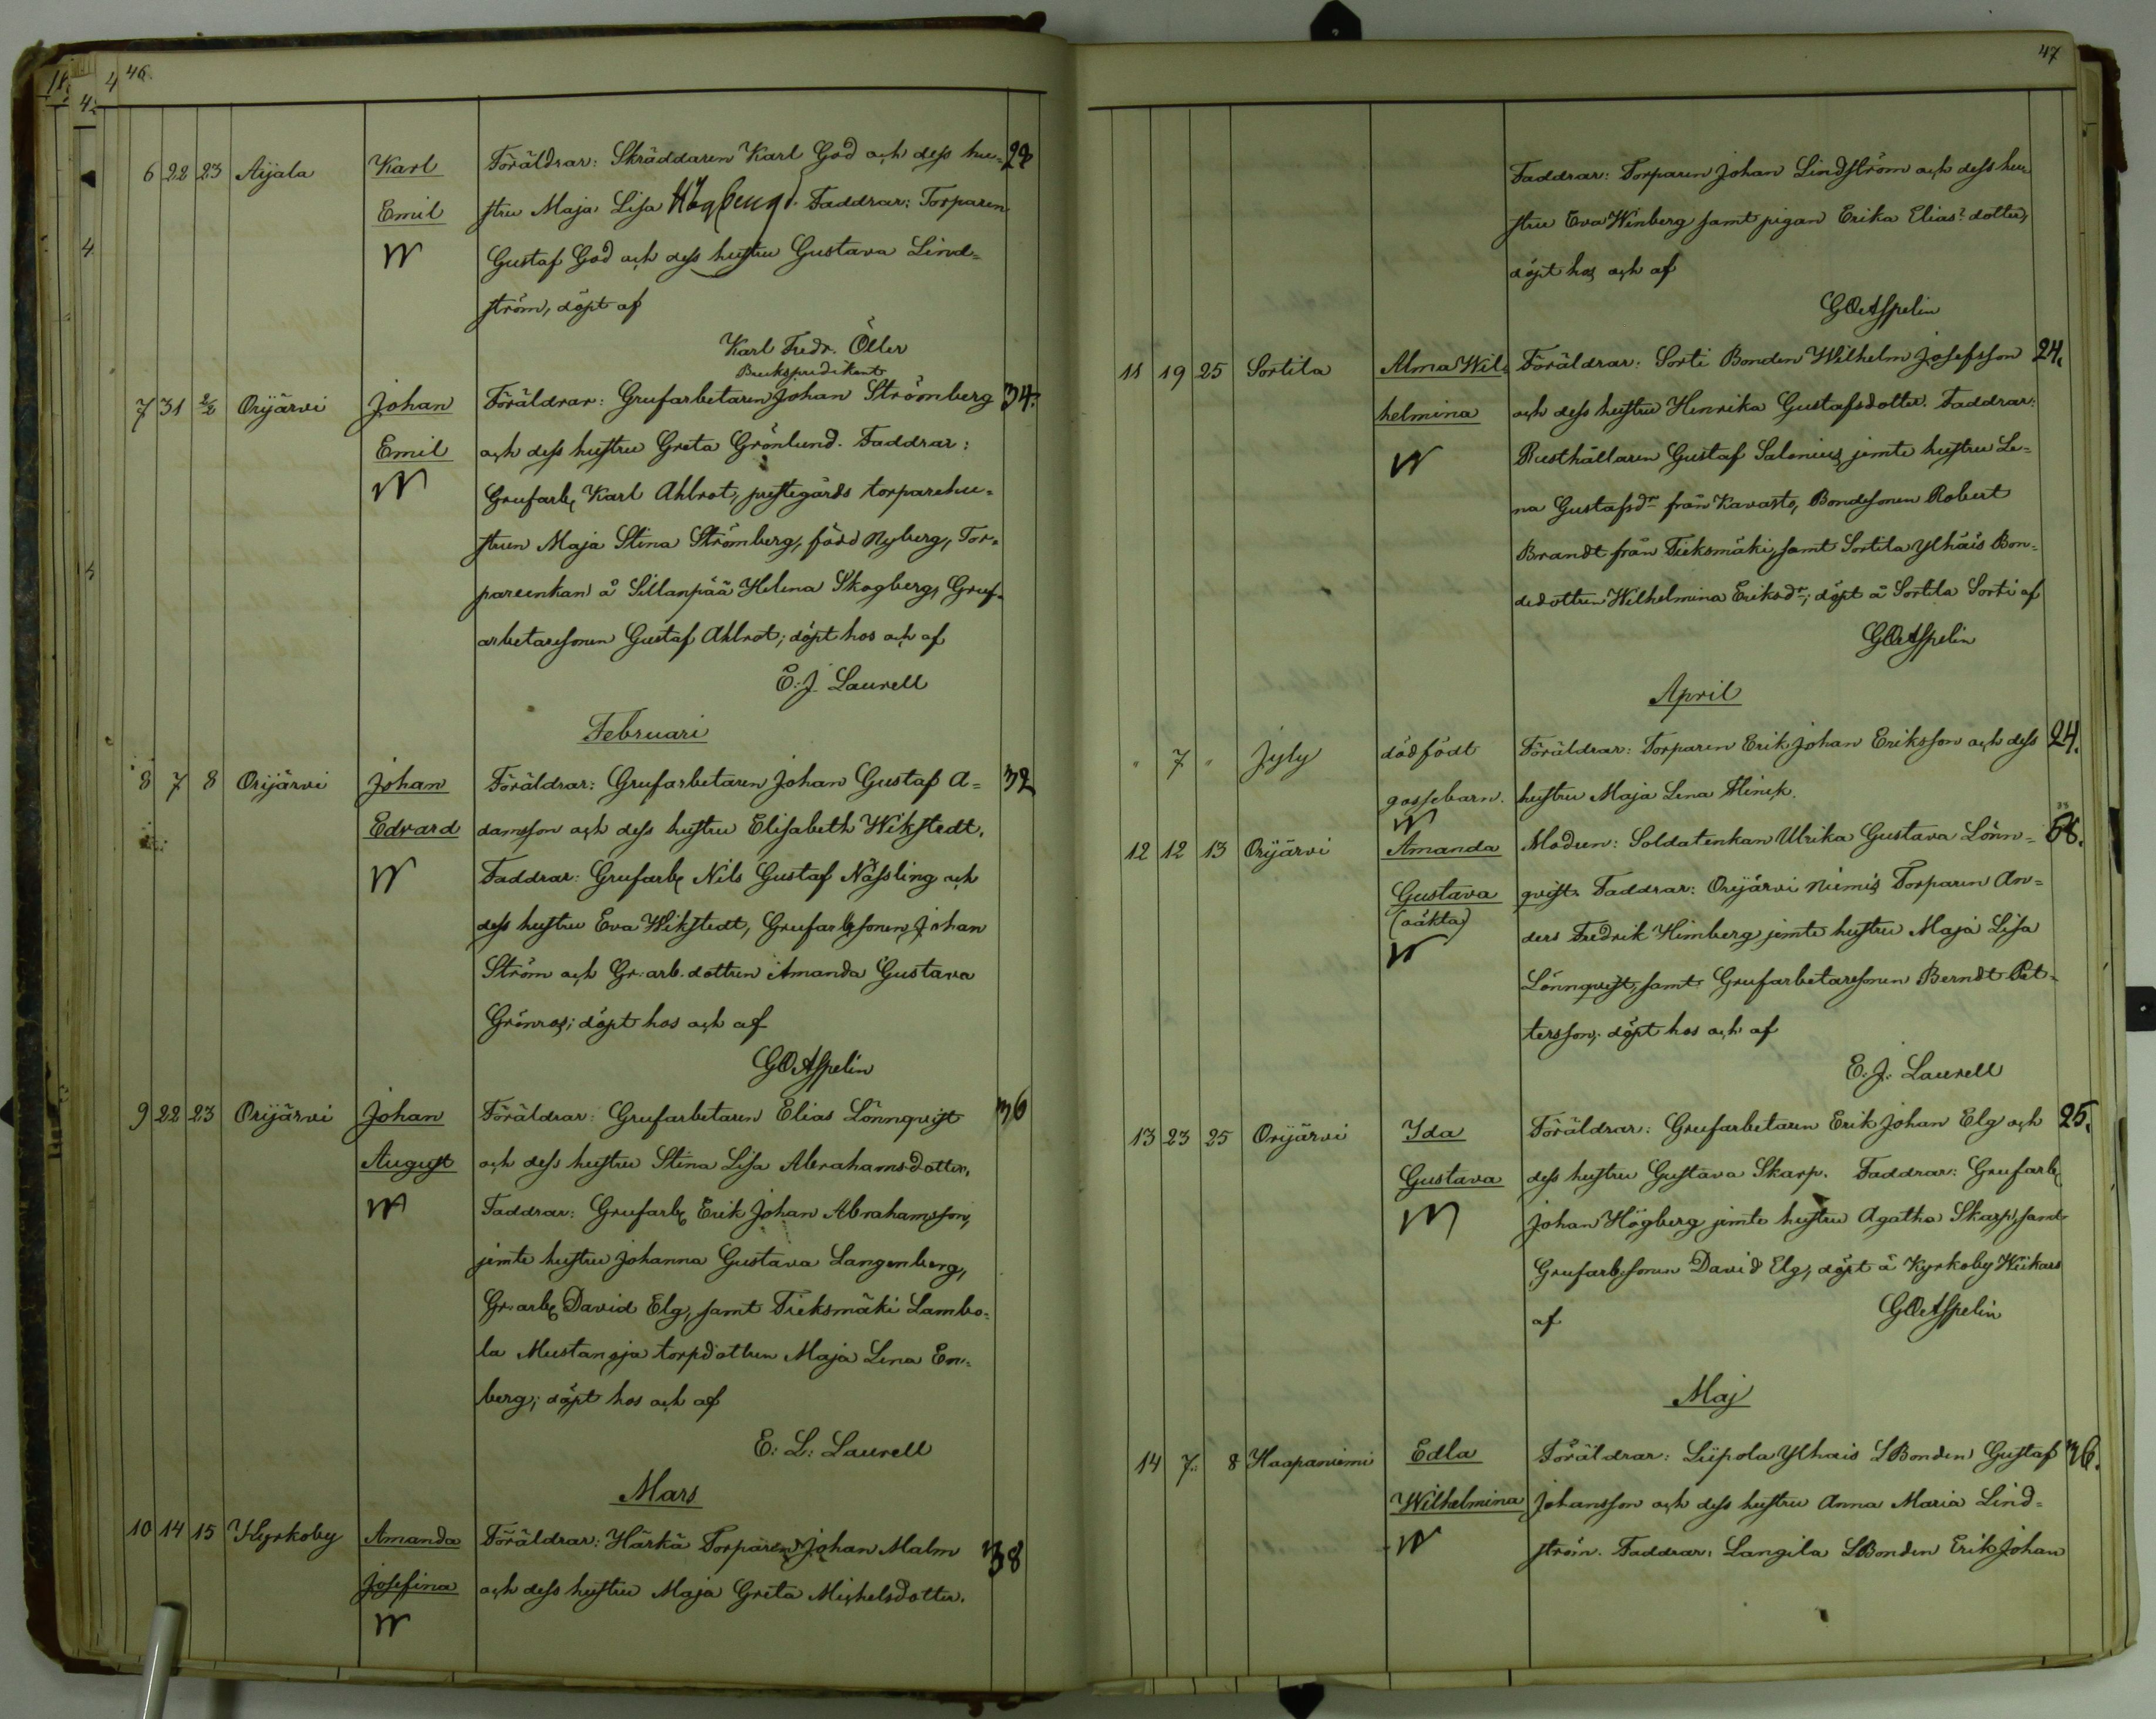 46.
6 22 23 Aijala Karl Föräldrar: Skräddaren Karl God och dess hu= 28
Emil stru Maja Lisa Högberg. Faddrar: Torparen
Gustaf God och dess hustru Gustava Lind=
ström, döpt af
Karl Fredr. Öller
Brukspredikant
7 31 2/2 Orijärvi Johan Föräldrar: Grufarbetaren Johan Strömberg 34.
Emil och dess hustru Greta Grönlund. Faddrar:
Grufarb. Karl Ahlrot, prestegårds torparehu=
strun Maja Stina Strömberg, född Nyberg, Tor=
pareenkan å Sillanpää Helena Skogberg, Gruf=
arbetaresonen Gustaf Ahlrot; döpt hos och af
E. J. Laurell
Februari
8 7 8 Orijärvi Johan Föräldrar: Grufarbetaren Johan Gustaf A= 32
Edvard damsson och dess hustru Elisabeth Wikstedt.
Faddrar: Grufarb. Nils Gustaf Nässling och
dess hustru Eva Wikstedt, Grufarb.sonen Johan
Ström och Gr. arb. dottren Amanda Gustava
Grönros; döpt hos och af
GOAspelin
9 22 23 Orijärvi Johan Föräldrar: Grufarbetaren Elias Lönnqvist 36
August och dess hustru Stina Lisa Abrahamsdotter.
Faddrar: Grufarb. Erik Johan Abrahamsson,
jemte hustru Johanna Gustava Langenberg,
Gr. arb. David Elg, samt Tieksmäki Lambo=
la Mustanoja torpdottren Maja Lena En=
berg; döpt hos och af
E. L. Laurell
Mars
10 14 15 Kyrkoby Amanda Föräldrar: Härkä Torparen Johan Malm 38
Josefina och dess hustru Maja Greta Michelsdotter.
47
Faddrar: Torparen Johan Lindström och dess hu=
stru Eva Winberg samt pigan Erika Elias dotter,
döpt hos och af
GOAspelin
11 19 25 Sortila Alma Wil= Föräldrar: Sorti Bonden Wilhelm Josefsson 24.
helmina och dess hustru Henrika Gustafsdotter. Faddrar:
Rusthållaren Gustaf Salenius jemte hustru Le=
na Gustafsdr från Kavasto, Bondesonen Robert
Brandt från Tieksmäki, samt Sortila Ylhäis Bon=
dedottren Wilhelmina Eriksdr; döpt å Sortila Sorti af
GOAspelin
April
" 7 " Jyly dödfödt Föräldrar: Torparen Erik Johan Eriksson och dess 24.
gossebarn. hustru Maja Lena Flinck.
12 12 13 Orijärvi Amanda Modren: Soldatenkan Ulrika Gustava Lönn= 38.
Gustava qvist. Faddrar: Orijärvi Niemis Torparen An=
(oäkta) ders Fredrik Himberg jemte hustru Maja Lisa
Lönnqvist, samt Grufarbetaresonen Berndt Pet=
tersson; döpt hos och af
E. J. Laurell
13 23 25 Orijärvi Ida Föräldrar: Grufarbetaren Erik Johan Elg och 25.
Gustava dess hustru Gustava Skarp. Faddrar: Grufarb.
Johan Högberg jemte hustru Agatha Skarp, samt
Grufarb.sonen David Elg, döpt å Kyrkoby Wiikars
af GOAspelin
Maj
14 7. 8 Haapaniemi Edla Föräldrar: Liipola Ylhais LBonden Gustaf 36.
Wilhelmina Johansson och dess hustru Anna Maria Lind=
ström. Faddrar: Langila LBonden Erik Johan